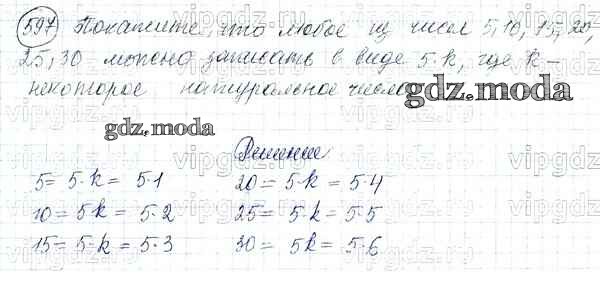 597 Покажите, что любое из чисел 5, 10, 15, 20,
25, 30 можно записать в виде 5·k, где k –
некоторое натуральное число
gdz.moda
gdz.moda
Решение
5 = 5·k = 5·1 20 = 5·k = 5·4
10 = 5k = 5·2 25 = 5·k = 5·5
15 = 5·k = 5·3 30 = 5k = 5·6